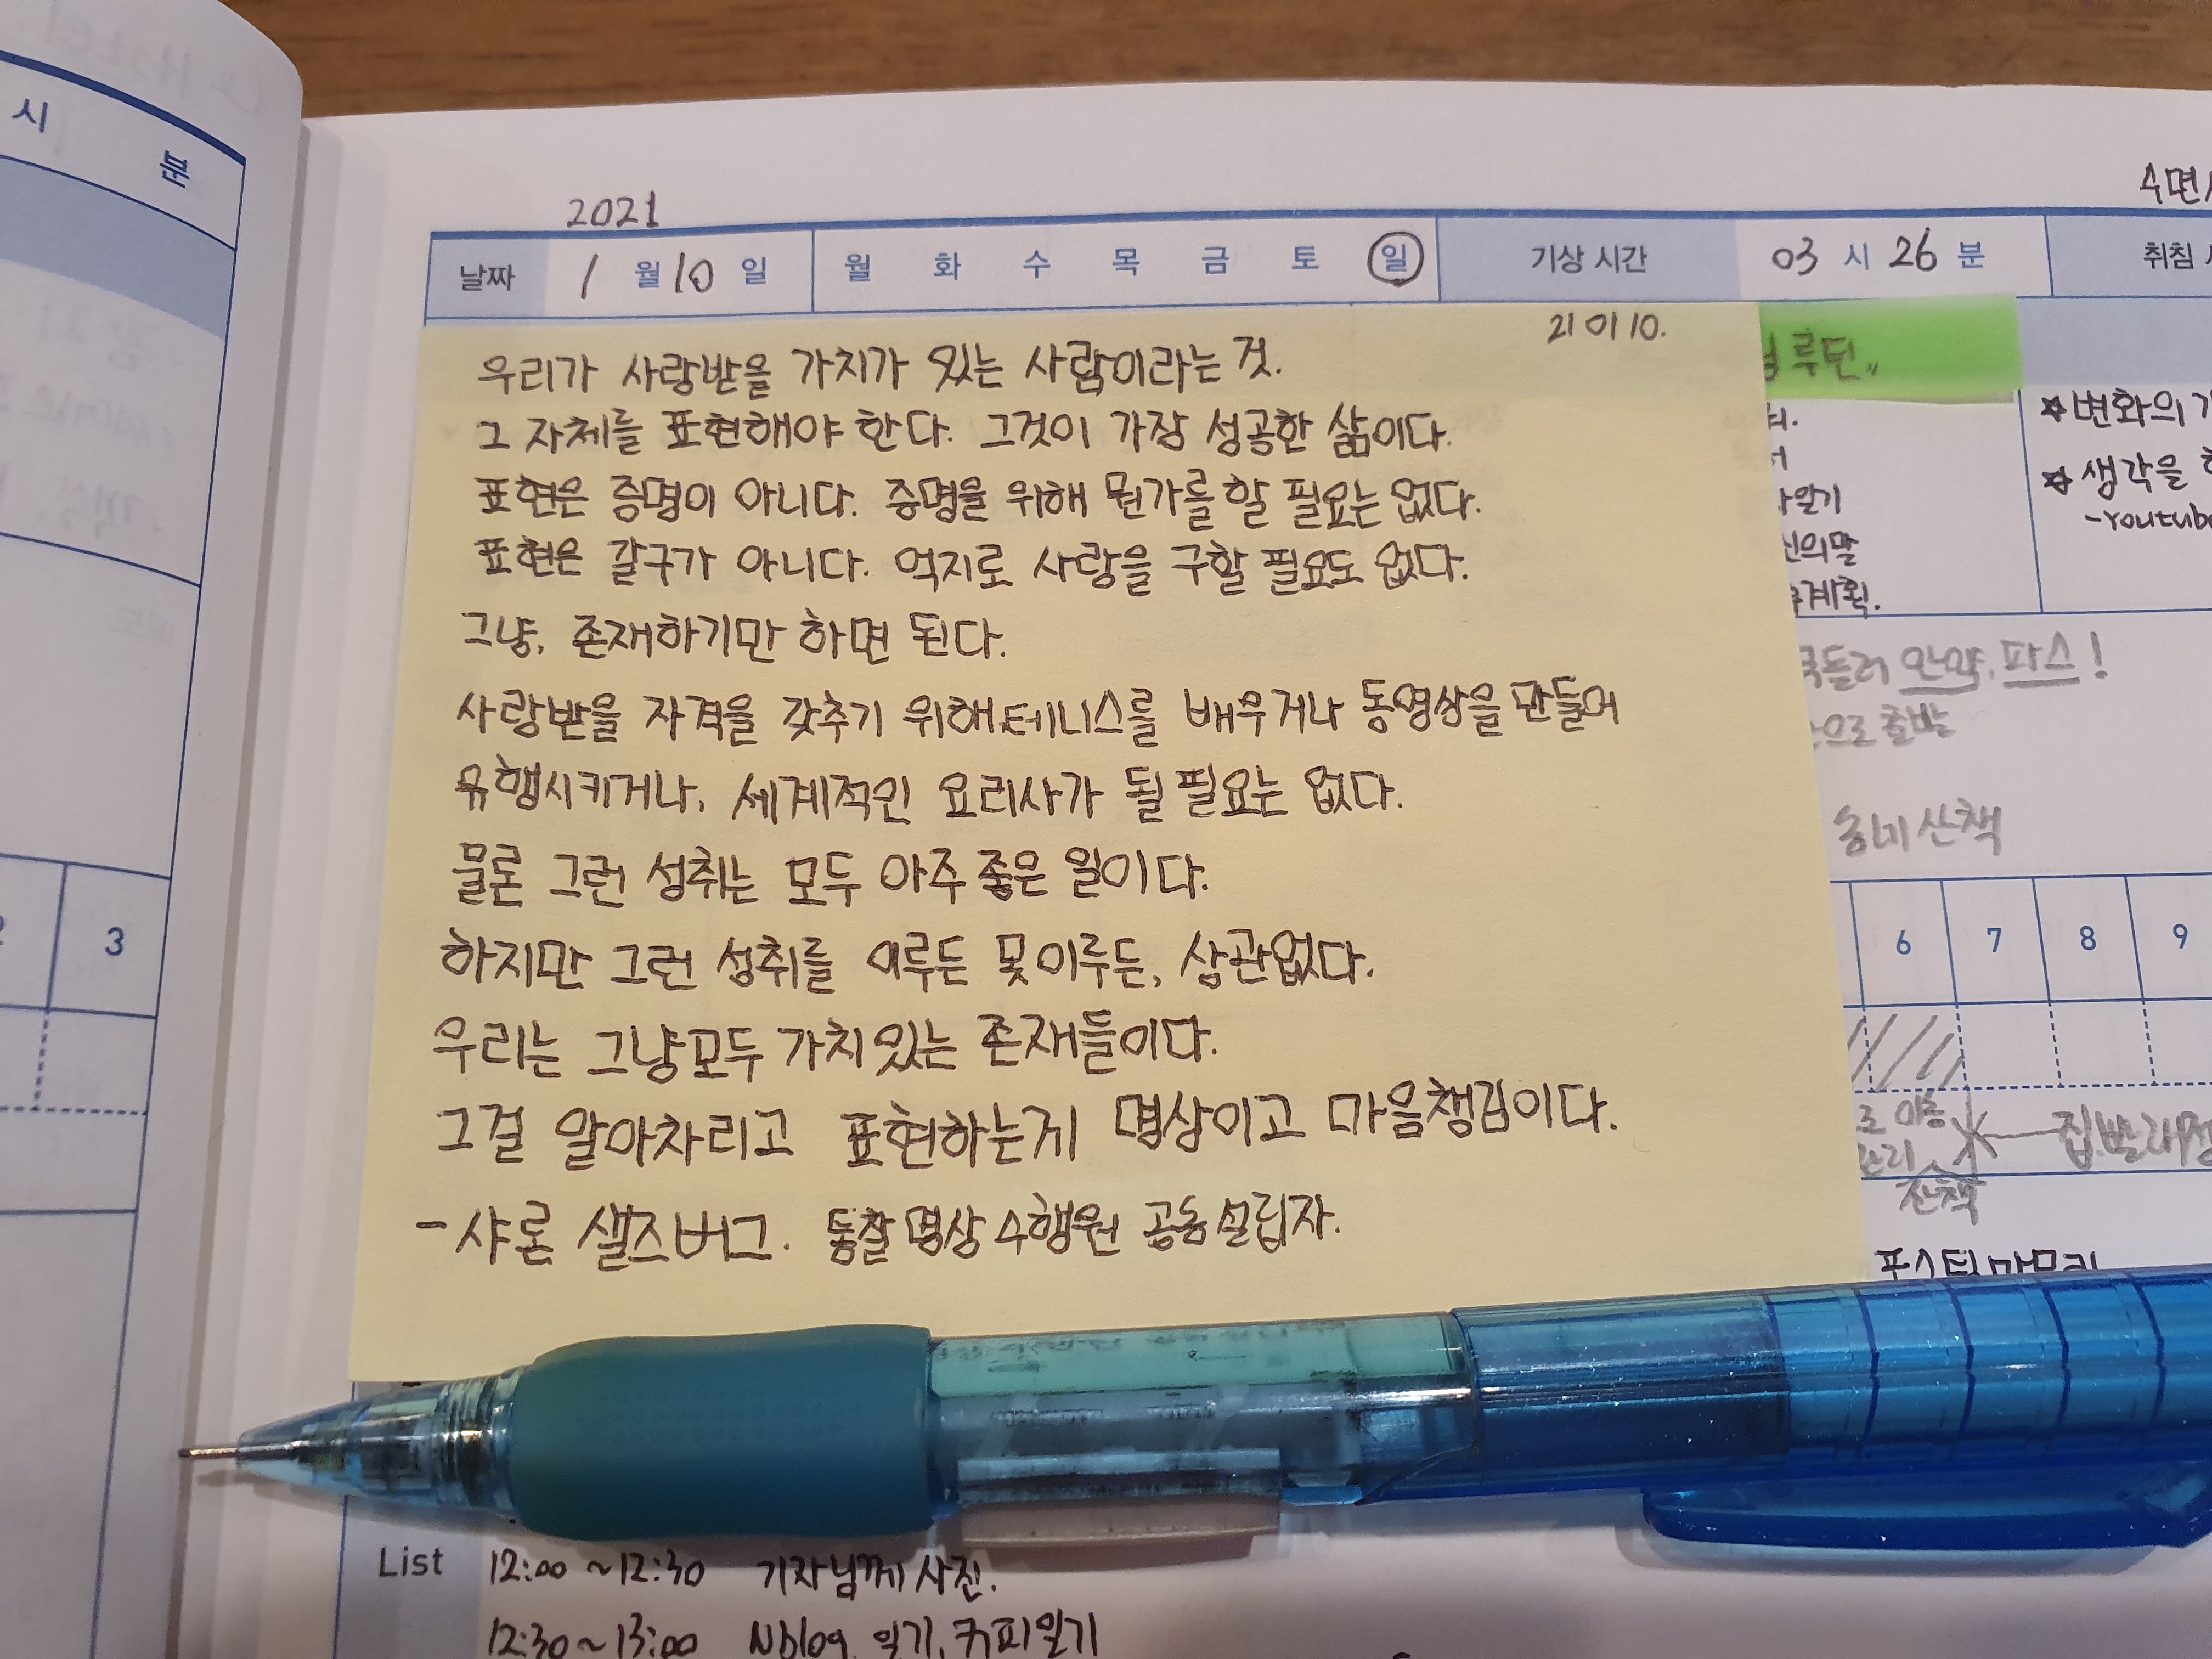 시
분
2021
날짜 1 월 10 일 월 화 수 목 금 토 일 기상 시간 03 시 26 분 취침
21 01 10.
우리가 사랑받을 가치가 있는 사람이라는 것.
그 자체를 표현해야 한다. 그것이 가장 성공한 삶이다.
표현은 증명이 아니다. 증명을 위해 뭔가를 할 필요는 없다.
표현은 갈구가 아니다. 억지로 사랑을 구할 필요도 없다.
그냥, 존재하기만 하면 된다.
사랑받을 자격을 갖추기 위해 테니스를 배우거나 동영상을 만들어
유행시키거나, 세계적인 요리사가 될 필요는 없다.
물론 그런 성취는 모두 아주 좋은 일이다.
하지만 그런 성취를 이루든 못 이루든, 상관없다.
우리는 그냥 모두 가치 있는 존재들이다.
그걸 알아차리고 표현하는게 명상이고 마음챙김이다.
- 샤론 샐즈버그. 통찰 명상 수행원 공동 설립자.
루틴
변화의
생각을
계획.
안약, 파스!
으로 출발
산책
3
6 7 8 9
산책
List 12:00 ~ 12:30 기자님께 사진.
12:30 ~ 13:00 Nblog 일기, 커피일기